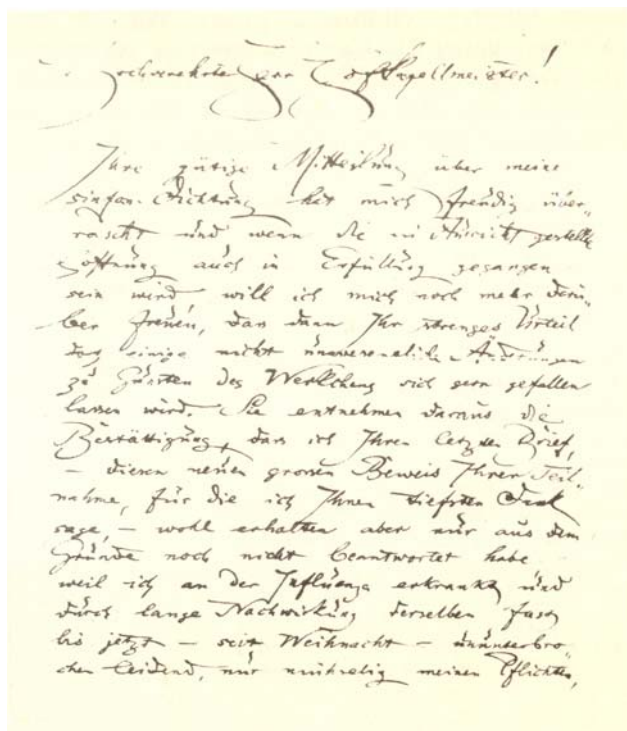 Hochverehrter Herr Hofkapellmeister!
Ihre gütige Mitteilung über meine
sinfon. Dichtung hat mich freudig über-
rascht und wenn die in Aussicht gestellte
Hoffnung auch in Erfüllung gegangen
sein wird, will ich mich noch mehr darü-
ber freuen, dass dann Ihr strenges Urteil
doch einige nicht Änderungen
zu Gunsten des Werkchens sich gern gefallen
lassen wird. Sie entnehmen daraus die
Bestättigung, dass ich Ihren letzten Brief,
– diesen neuen grossen Beweis Ihrer Teil-
nahme, für die ich Ihnen tiefsten Dank
sage, – wohl erhalten aber nur aus dem
Grunde noch nicht beantwortet habe
weil ich an der Influenza erkrankt und
durch lange Nachwirkung derselben fast
bis jetzt – seit Weihnacht – ununterbro-
chen leidend, nur mühselig meinen Pflichten,